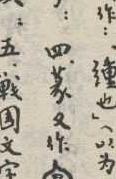 作：緟也〈以为
四、篆文作
五、战国文字